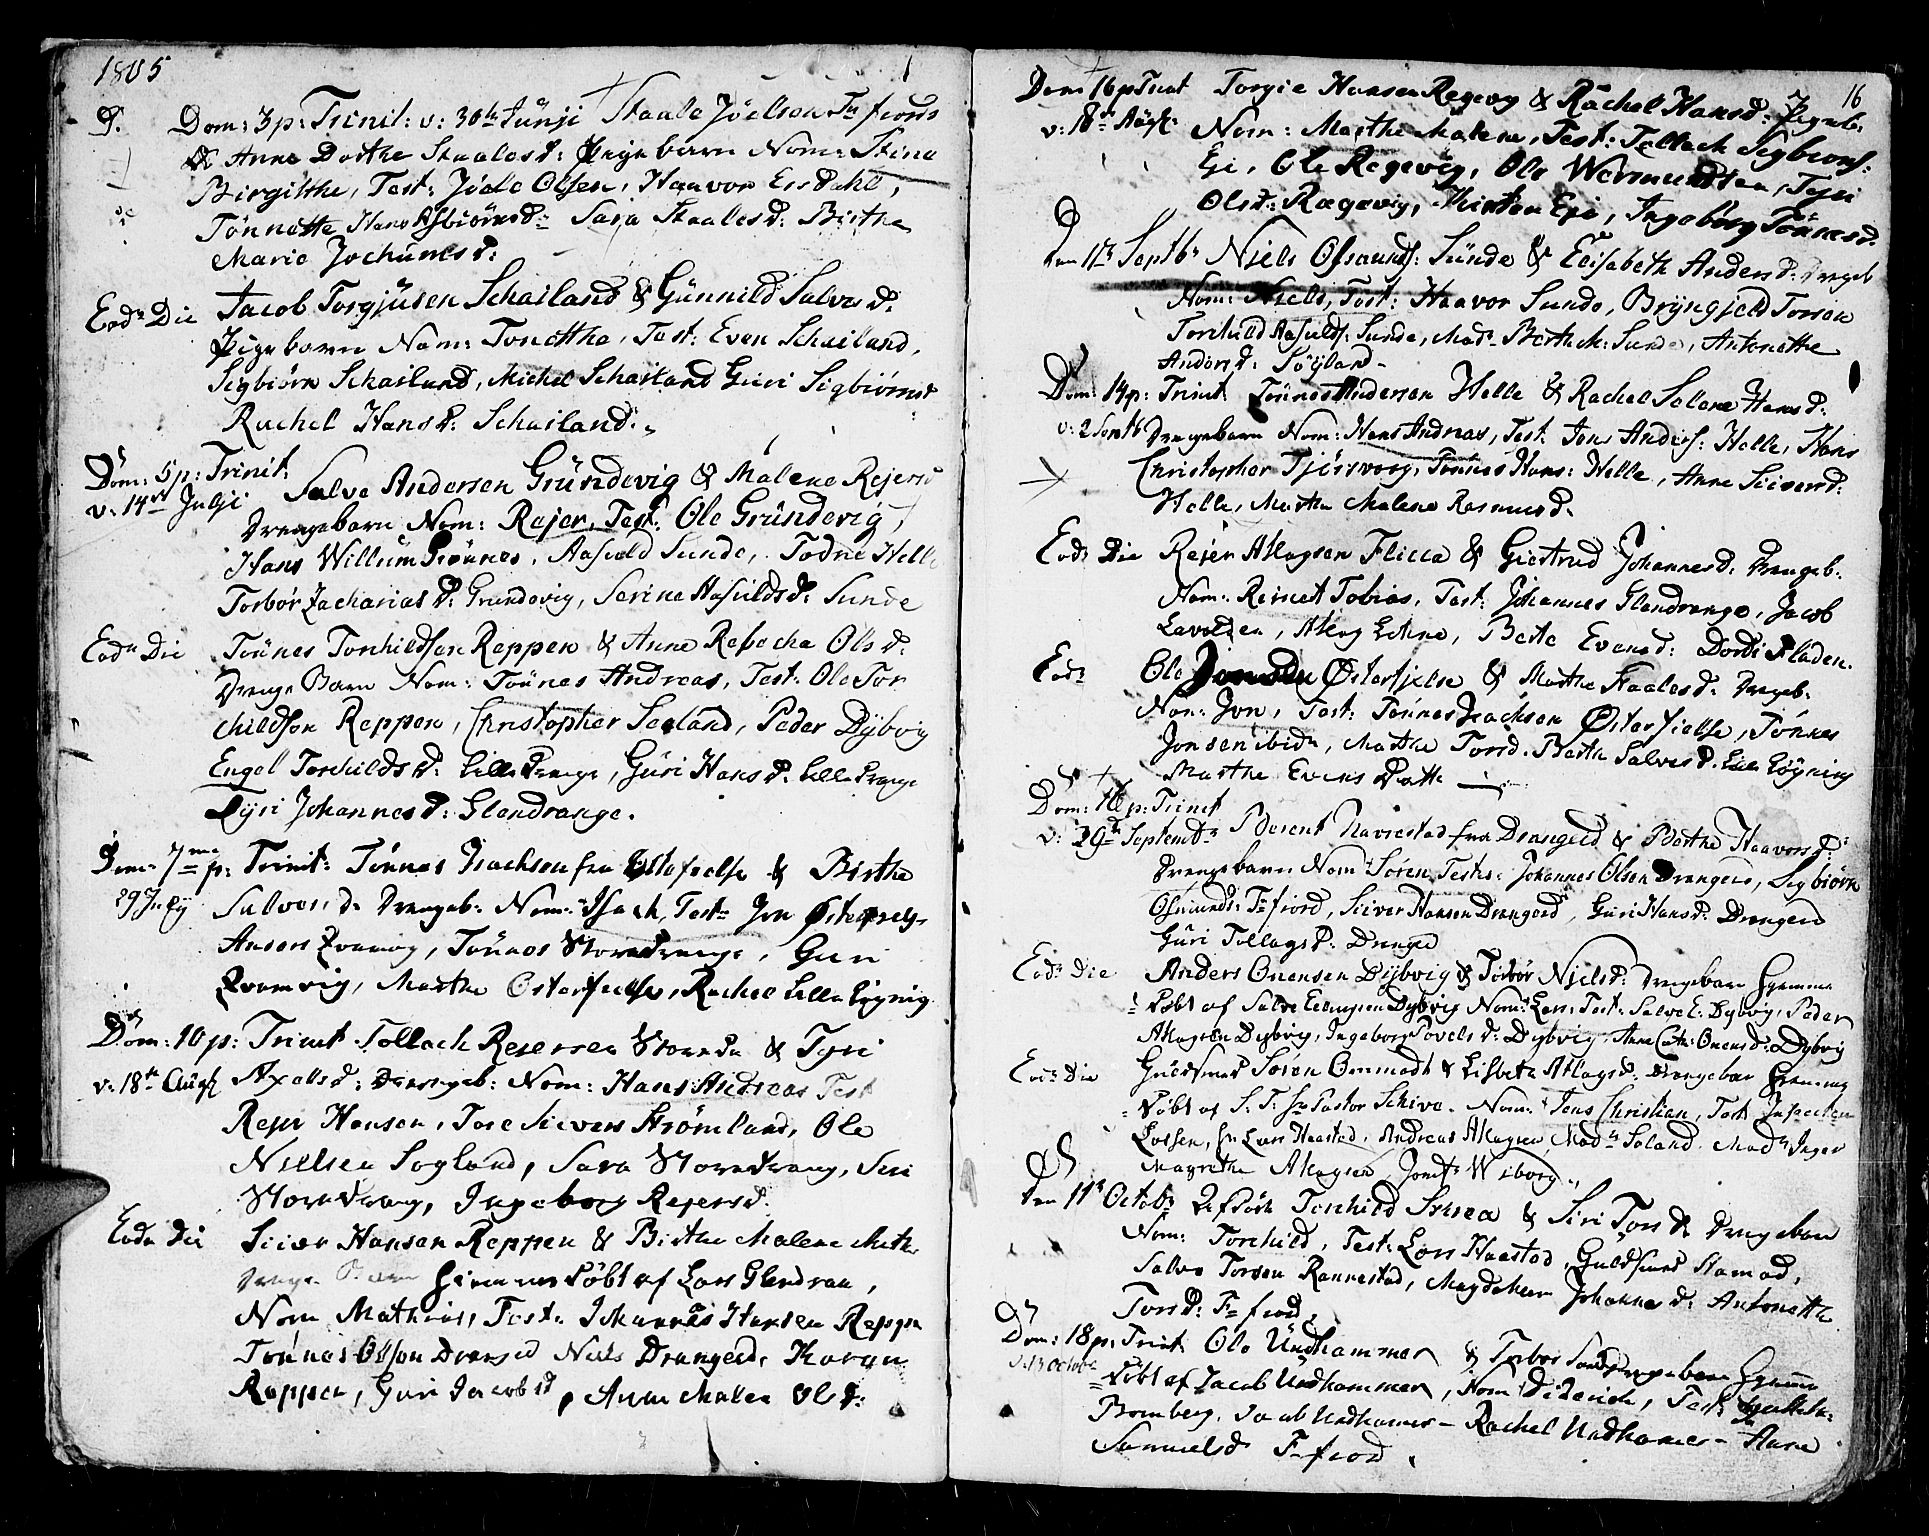 1805
D. Dom: 3 p: Trinit: v: 30te Junji Staale Joelsen F: fiords
& Anne Dorthe Staalesd: Pigebarn Nom: Stina
Birgitthe, Test: Joele Olsen, Haavor Eisdahl,
Tönnette Hans Asbiörnsd: Sara Staalesd: Birthe
Marie Jochumsd:
Eod: Die Jacob Torgjüsen Schailand & Günnild Salvesd.
Pigebarn Nom: Tonettha, Test: Even Schailand,
Sigbiörn Schailand, Michel Schailand Guri Sigbiörnsd
Rachel Hansd: Schailand.
Dom: 5 p: Trinit:
v: 14de Julji Salve Andersen Gründevig & Malene Rejersd
Drengebarn Nom: Rejer, Test: Ole Gründevig,
Hans Willum Tönnes, Aasuld Sunde, Todne Helle
Torbor Zachariasd: Grundevig, Serine Aasuldsd: Sunde
Eod: Die Tönnes Torkildsen Reppen & Anne Rebecha Olsd:
Drenge Barn Nom: Tönnes Andreas, Test: Ole Tor
childsøn Reppen, Christopher Seeland, Peder Dÿbvig
Engel Torchildsd: Lille Drange, Güri Hansd: Lille Drange
Tyri Johannesd: Glendrange.
Dom: 7me p: Trinit: Tönnes Isachsen fra Østefjelse & Birthe
29 July Salvesd: Drengeb: Nom: Isach, Test: Jon Østefjels
Ansen Qvamvig, Tönnes Storedrange, Guri
Qvamvig, Marthe Osterfjelse, Rachel Lille Løgning
Dom: 10 p: Trinit Tollach Rejersen Storedr & Tyri
v: 18de Augst Axelsd: Drengeb: Nom: Hans Andreas Test
Rejer Hansen, Tore Sivers Strömland, Ole
Nielsen Sogland, Sara Storedrang, Siri
Storedrang, Ingeborg Rejersd.
Eod: Die Siver Hansen Reppen & Birthe Malene Math:
Drenge Barn Hjemmedöbt af Lars Glendran,
Nom Mathias, Test: Johannes Hansen Reppen
Tönnes Olsson Dranged Niels Drangeid, Karen
Reppen, Guri Jacobsd, Anne Malen Olsd:
16
Dom: 16 p Trinit Torgie Hansen Regevig & Rachel Hansd: Pigeb:
v: 18de Augst: Nom: Marthe Malene, Test: Tollach Sigbiörns:
Eje, Ole Regevig, Ole Wermundsen, Tyri
Olsd: Rægevig, Kirsten Eje, Ingeborg Tönnesd.
Den 1te Septbr Niels Osmunds: Sünde & Elisabeth Andersd: Drengeb
Nom: Niels, Test: Haavor Sunde, Bryngjeld Torsen
Torchild Aasulds: Sunde, Mad: Berthe M: Sunde, Antonette
Andersd: Söyland
Dom: 14 p: Trinit Tönnes Andersen Helle & Rachel Helene Hansd:
v: 2 Septb Drengebarn Nom: Hans Andreas, Test: Jens Anders: Helle, Hans
Christopher Tjörsvaag, Tönnes Hans: Helle, Anne Siversd:
Helle, Marthe Malene Rasmusd.
Eod: Die Rejer Aslagsen Flicca & Giertrud Johannesd. Drengeb.
Nom: Reinert Tobias, Test: Johannes Glendrange, Jacob
Lavoldsen, Berte Evensd: Dordi Fladen.
Eod: Ole Jonsen Østerfjelse & Marthe Staalesd. Drengb.
Nom: Jon, Test: Tönnes Isachsen Østerfielse, Tönnes
Jonsen ibid:, Marthe Torsd. Berthe Salvesd. Lille Løgning
Marthe Evens Datt
Dom: 16 p: Trinit
v: 29de Septembr Berent Naviestad fra Drangeid & Berthe Haavorsd:
Drengebarn Nom: Sören, Testes: Johannes Olsen Drangeid, Sigbiörn
Osmunds: F:fiord, Siver Hansen Drangeid, Guri Hansd: Drangeid
Guri Tollagsd: Dranged
Eod: Die Anders Onensen Dÿbvig & Torbor Nielsd: Drengebarn Hjemme
döbt af Salve Dybvig Nom: Lars, Test: Salve E: Dybvig, Peder
Aslagsen Dybvig, Ingeborg Povelsd: Dybvig, Anne Cath: Onensd: Dybvig
Eod: Die Guldsmed Sören Ommodt & Lisbeta Atlagsd: Drengebar Hiemme
döbt af S. T. Hr Pastor Schive. Nom: Jens Christian, Test Inspecteur
Lassen, Hr Lars Haastad, Andreas Aslagsen, Mad: Søland. Mad: Inger
Magrethe Aslagsen, Jomfr: Wiborg.
Den 11te Octob: Torchild & Siri Torsd. Drengebarn
Nom: Torchild, Test: Lars Haastad, Guldsmed Hamod,
Salve Torsen Rannestad, Magdelene Johannesd. Antonette
Torsd: F:fiord,
Dom: 18 p: Trinit Ole Undhammer & Torbor Drengebarn Hjemme
v. 13 Octobr döbt af Jacob Undhammer, Nom Diderich, Test:
Bomberg, Jacob Undhamer – Rachel Undhamer – Anne
Samuelsd F:fiord.